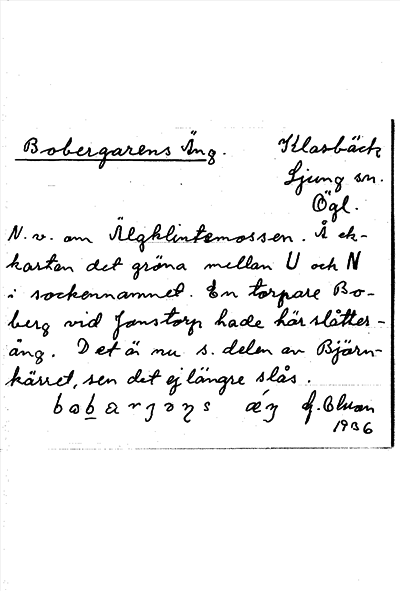 Bobergarens Äng. Klasbäck
Ljung sn.
Ögl.
N.v. om Älgklintemossen. Å ek-
kartan det gröna mellan U och N
i sockennamnet. En torpare Bo-
berg vid Jonstorp hade här slåtter-
äng. Det är nu s. delen av Björn-
kärret, sen det ej längre slås.
1936